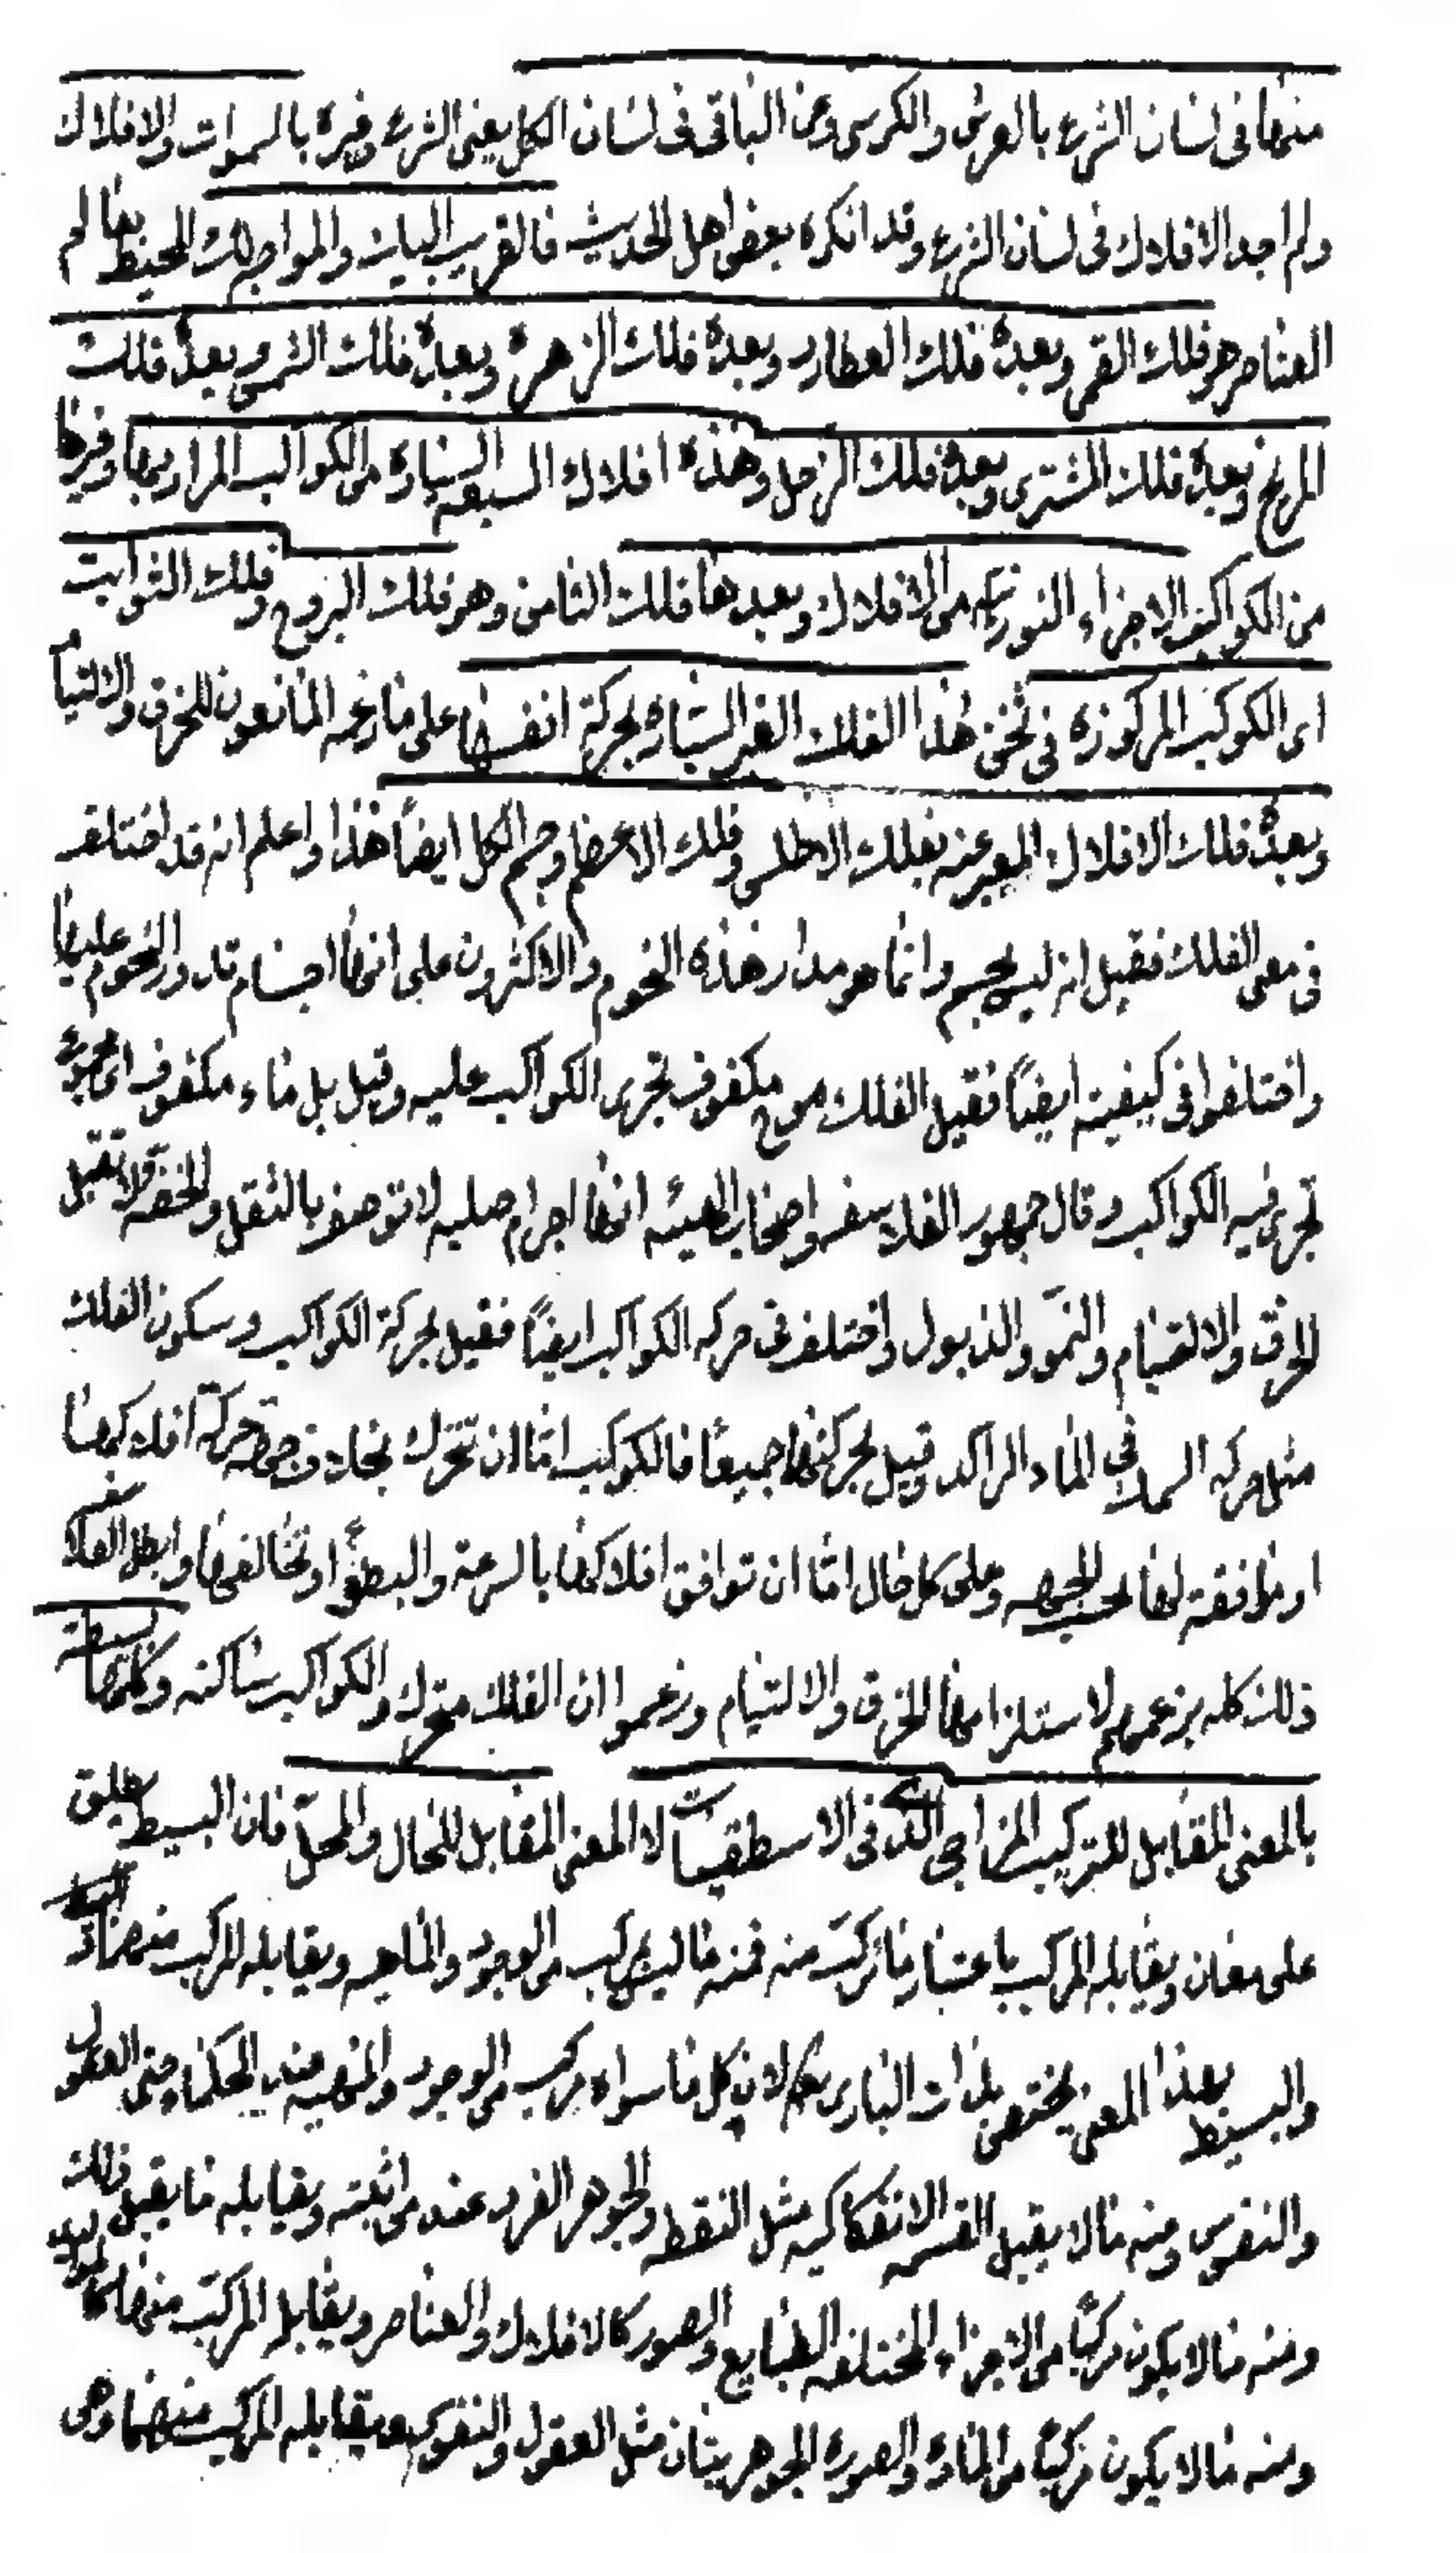 منها فى لسان الشرع بالعرش والكرسى وعن الباقى فى لسان الكل يعنى الشرع وغيره بالسموات والافلاك
ولم اجد الافلاك فى لسان الشرع وقد انكره بعض اهل الحديث فالقريب الينا والمواجه لك المحيط بعالم
العناصر هو فلك القمر وبعده فلك العطارد وبعده فلك الزهرة وبعده فلك الشمس وبعده فلك
المريخ وبعده فلك المشترى وبعده فلك الزحل وهذه افلاك السبعة السيارة من الكواكب المراد بها وغيرها
من الكواكب الاجزاء النورية من الافلاك وبعدها فلك الثامن وهو فلك البروج وفلك الثوابت
اى الكوكب المركوزه فى ثخن هذا الفلك الغير السياره بحركة انفسها على ما زعمه المانعون للخرق والالتيام
وبعده فلك الافلاك المعبر عنه بفلك الاطلس وفلك الاعظم وجسم الكل ايضاً هذا واعلم انه قد اختلف
فى معنى الفلك فقيل انه ليس بجسم وانما هو مدار هذه النجوم والاكثرون على انها اجسام تدور النجوم عليها
واختلفوا فى كيفيته ايضاً فقيل الفلك موج مكفوف تجرى الكواكب عليه وقيل بل ماء مكفوف اى مجموع
تجرى فيه الكواكب وقال جمهور الفلاسفه واصحاب الهيئه انها اجرام صلبه لا توصف بالثقل والخفة ولا تقبل
الخرق والالتيام والنمو والذبول واختلف فى حركه الكواكب ايضاً فقيل بحركة الكواكب وسكون الفلك
مثل حركه السمك فى الماء الراكد وقيل بحركتهما جميعاً فالكوكب اما ان تتحرك بخلاف جهة حركة افلاكها
او موافقة لها بحسب الجهه وعلى كل حال اما ان توافق افلاكها بالسرعة والبطؤ او تخالفها وابطل الفلاسفه
ذلك كله بزعمهم لاستلزامها الخرق والالتيام وزعموا ان الفلك متحرك والكواكب ساكنه وكلها بسيطة
بالمعنى المقابل للتركيب المزاجى الذى فى الاسطقسات لا المعنى المقابل للحال والمحل فان البسيط يطلق
على معان ويقابله المركب باعتبار ما تركب منه فمنه ما ليس بمركب من الوجود والماهيه ويقابله المركب منهما
والبسيط بهذا المعنى يختص بذات البارى لان كل ما سواه مركب من الوجود والمهيه عند الحكماء حتى العقول
والنفوس ومنه ما لا يقبل القسمه الانفكاكيه مثل النقطه والجوهر الفرد عند من اثبته ويقابله ما يقبل ذلك
ومنه ما لا يكون مركباً من الاجزاء المختلفه الطبايع والصور كالافلاك والعناصر ويقابله المركب منها
ومنه ما لا يكون مركباً من المادة والصوره الجوهريتان مثل العقول والنفوس ويقابله المركب منهما وهى